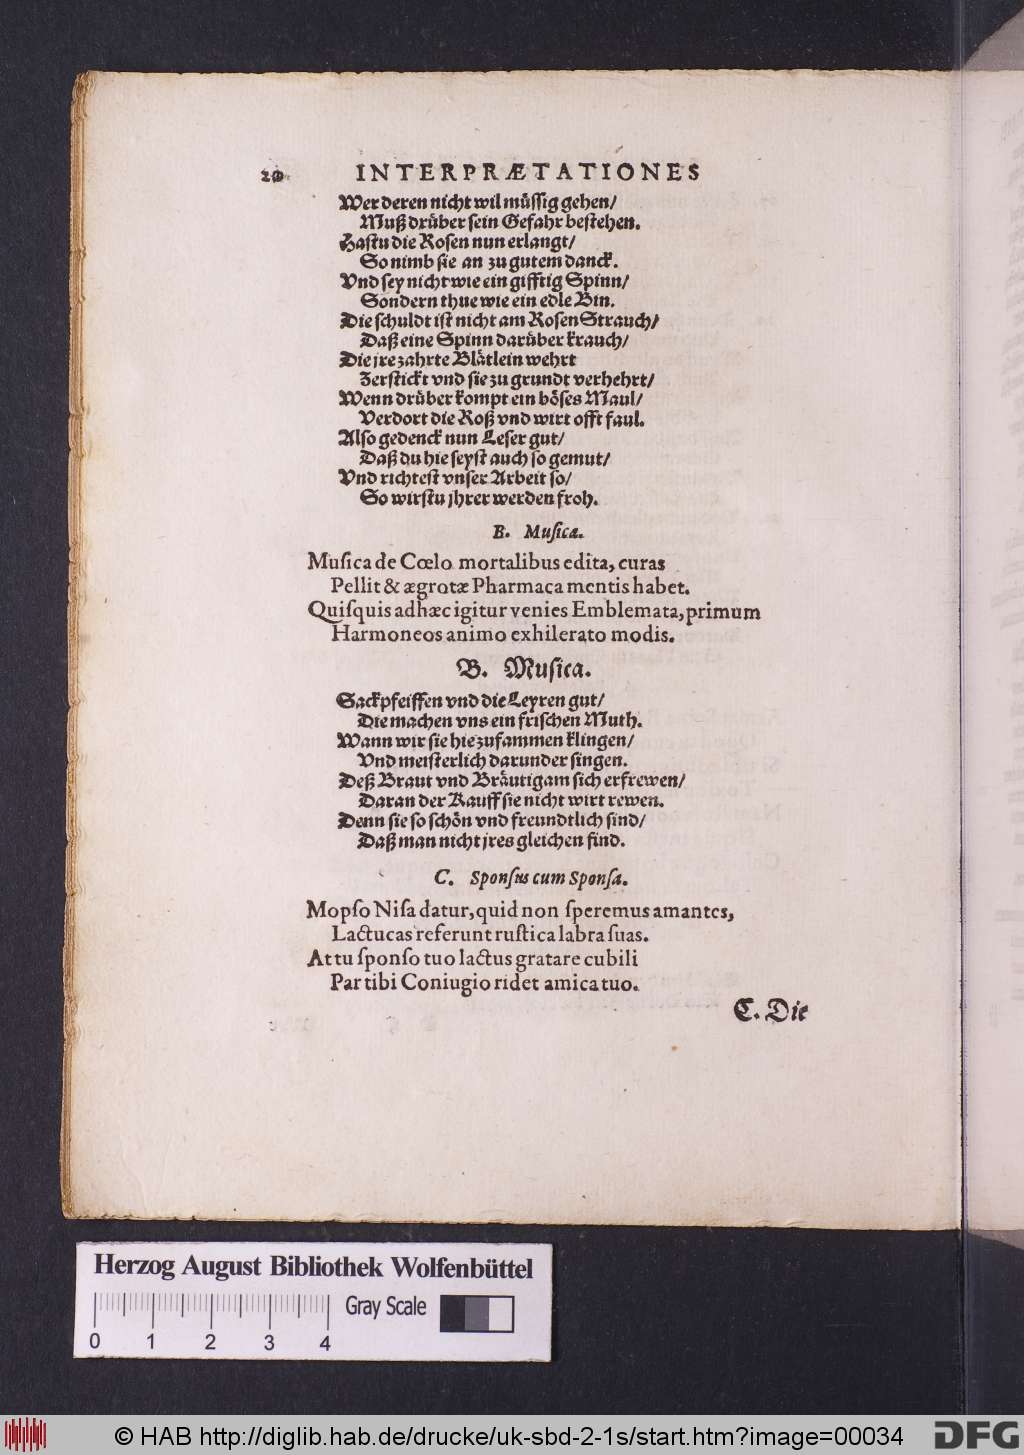 20 INTERPRÆTATIONES
Wer deren nicht wil müssig gehen/
Muß drüber sein Gefahr bestehen.
Hastu die Rosen nun erlangt/
So nimb sie an zu gutem danck.
Vnd sey nicht wie ein gifftig Spinn/
Sondern thue wie ein edle Bin.
Die schuldt ist nicht am Rosen Strauch/
Daß eine Spinn darüber krauch/
Die jre zahrte Blätlein wehrt
Zerstickt vnd sie zu grundt verhehrt/
Wenn drüber kompt ein böses Maul/
Verdort die Roß vnd wirt offt faul.
Also gedenck nun Leser gut/
Daß du hie seyst auch so gemut/
Vnd richtest vnser Arbeit so/
So wirstu jhrer werden froh.
B. Muſica.
Muſica de Cœlo mortalibus edita, curas
Pellit & ægrotæ Pharmaca mentis habet.
Quiſquis ad hæc igitur venies Emblemata, primum
Harmoneos animo exhilerato modis.
B. Musica.
Sackpfeiffen vnd die Leyren gut/
Die machen vns ein frischen Muth.
Wann wir sie hie zusammen klingen/
Vnd meisterlich darunder singen.
Deß Braut vnd Bräutigam sich erfrewen/
Daran der Kauff sie nicht wirt rewen.
Denn sie so schön vnd freundtlich sind/
Daß man nicht jres gleichen find.
C. Sponſus cum Sponſa.
Mopſo Niſa datur, quid non ſperemus amantes,
Lactucas referunt ruſtica labra ſuas.
At tu ſponſo tuo lactus gratare cubili
Par tibi Coniugio ridet amica tuo.
C. Die
Herzog August Bibliothek Wolfenbüttel
Gray Scale
0 1 2 3 4
© HAB http://diglib.hab.de/drucke/uk-sbd-2-1s/start.htm?image=00034
DFG